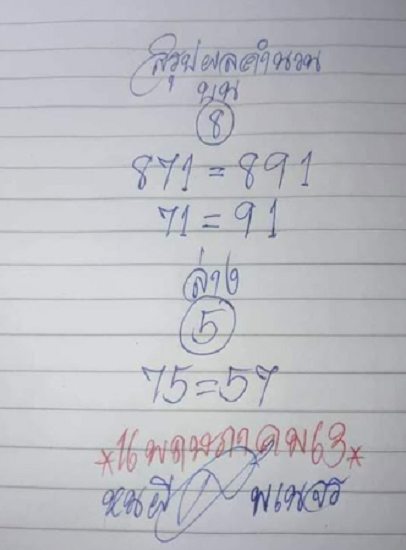 สรุปผลคำนวน
บน
8
871=891
71=91
ล่าง
5
75=57
*16 พฤษภาคม 63*
หนผี พเนจร